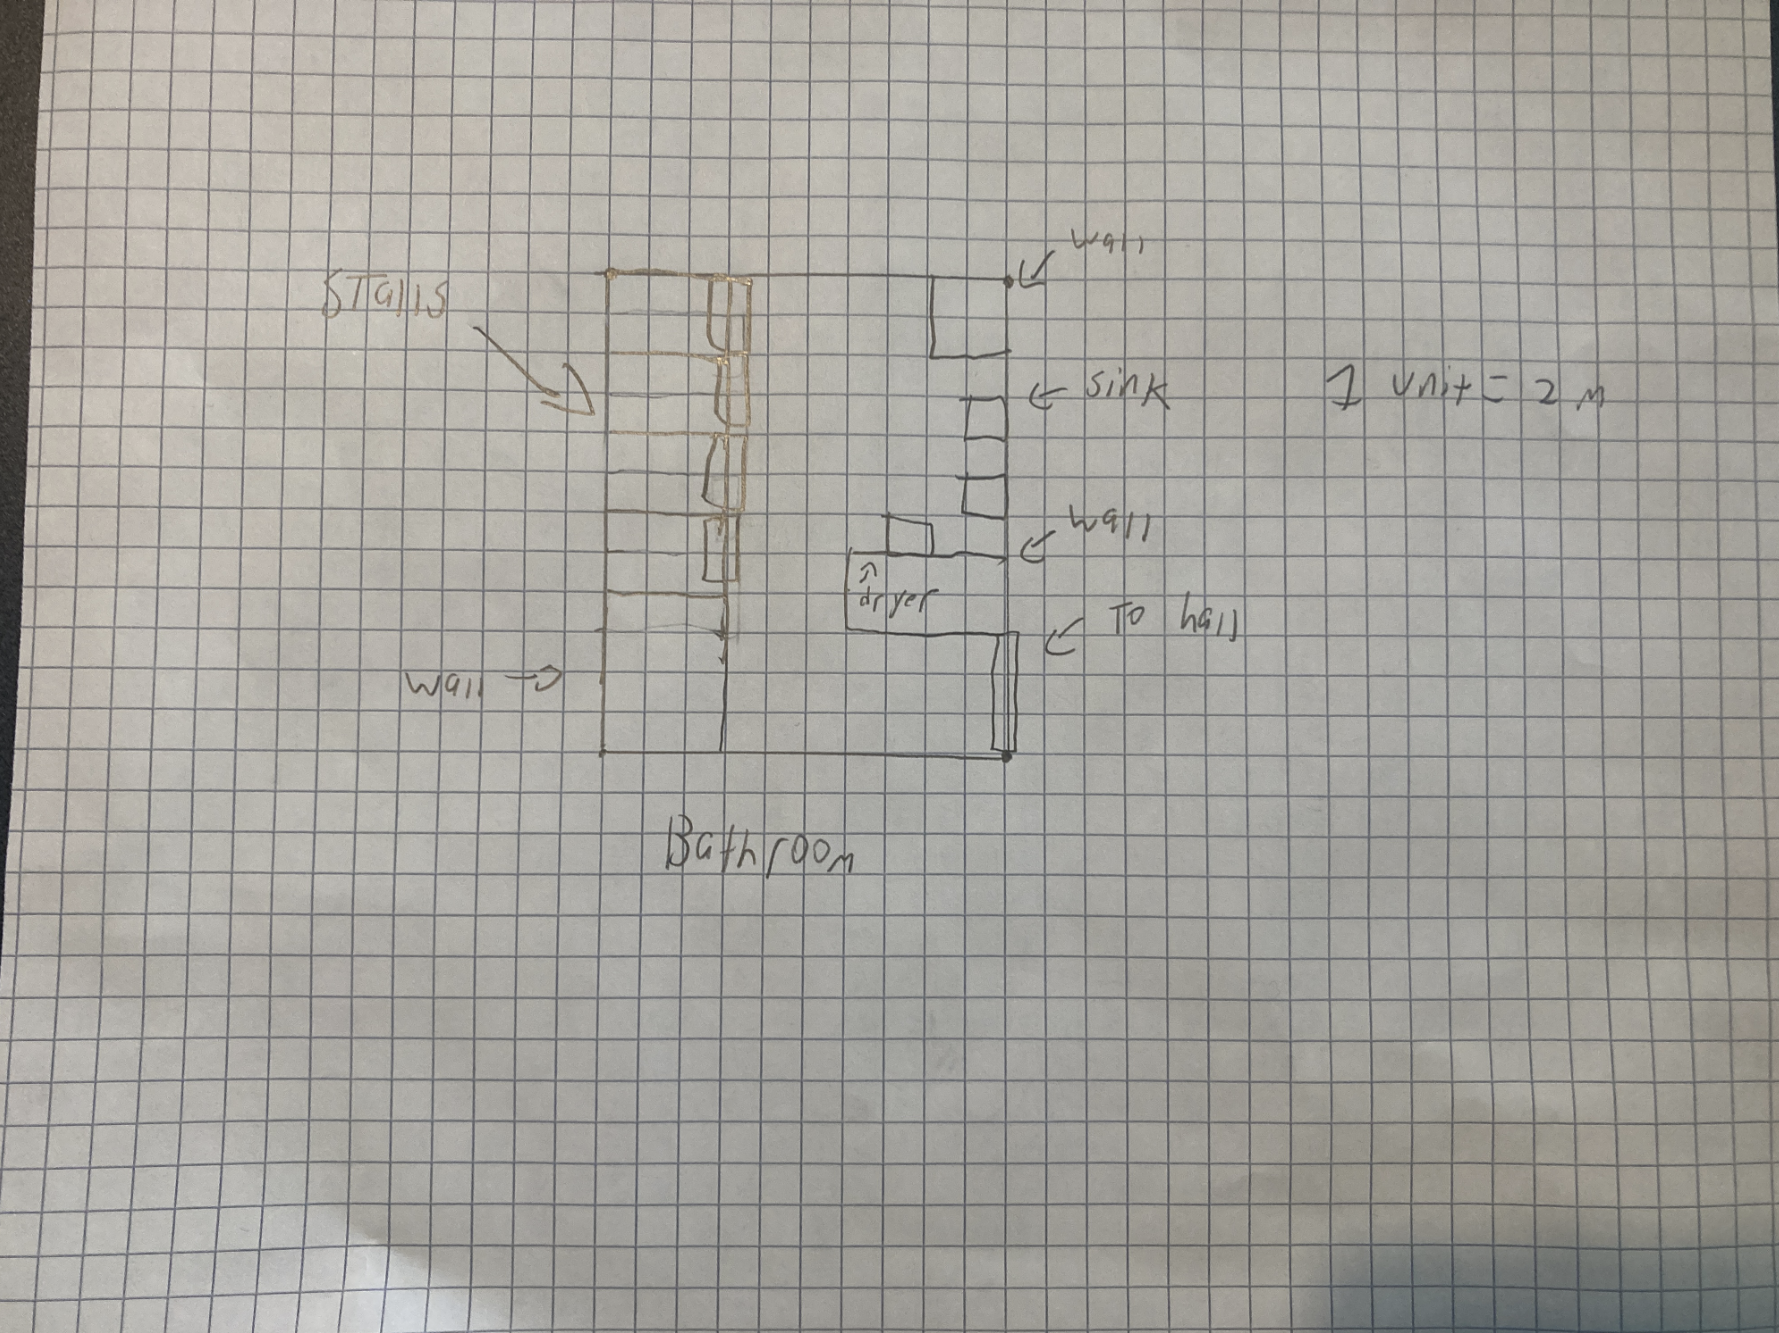 wall
STalls
sink
1 unit = 2 m
wall
dryer
To hall
wall
Bathroom